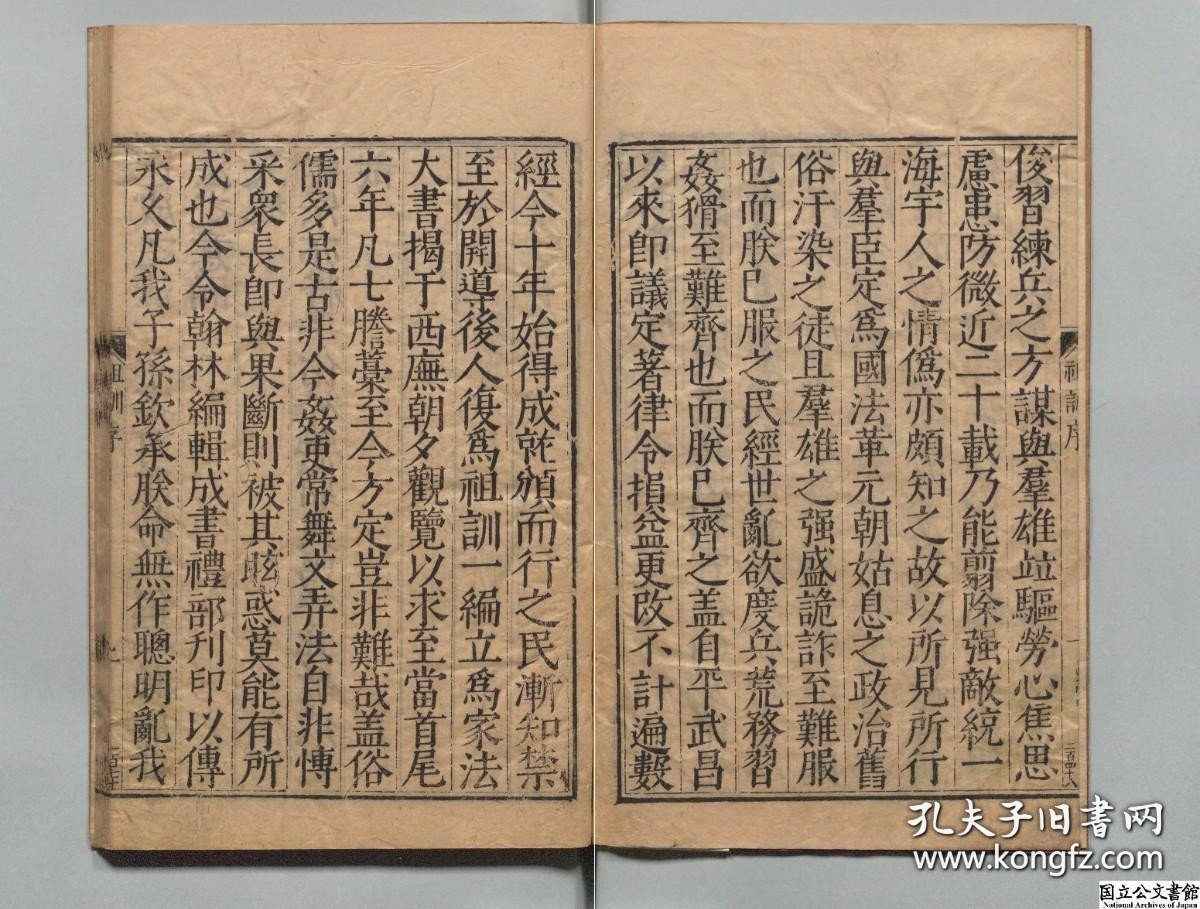 俊習練兵之方謀與羣雄竝驅勞心焦思
慮患防微近二十載乃能翦除强敵統一
海宇人之情僞亦頗知之故以所見所行
與羣臣定爲國法革元朝姑息之政治舊
俗汙染之徒且羣雄之强盛詭詐至難服
也而朕已服之民經世亂欲度兵荒務習
姦猾至難齊也而朕已齊之盖自平武昌
以來即議定著律令損益更改不計遍數
經今十年始得成就頒而行之民漸知禁
至於開導後人復爲祖訓一編立爲家法
大書揭于西廡朝夕觀覽以求至當首尾
六年凡七謄藁至今方定豈非難哉盖俗
儒多是古非今姦吏常舞文弄法自非愽
采衆長即與果斷則被其眩惑莫能有所
成也今令翰林編輯成書禮部刋印以傳
永久凡我子孫欽承朕命無作聰明亂我
祖訓序
孔夫子旧书网
www.kongfz.com
国立公文書館
National Archives of Japan